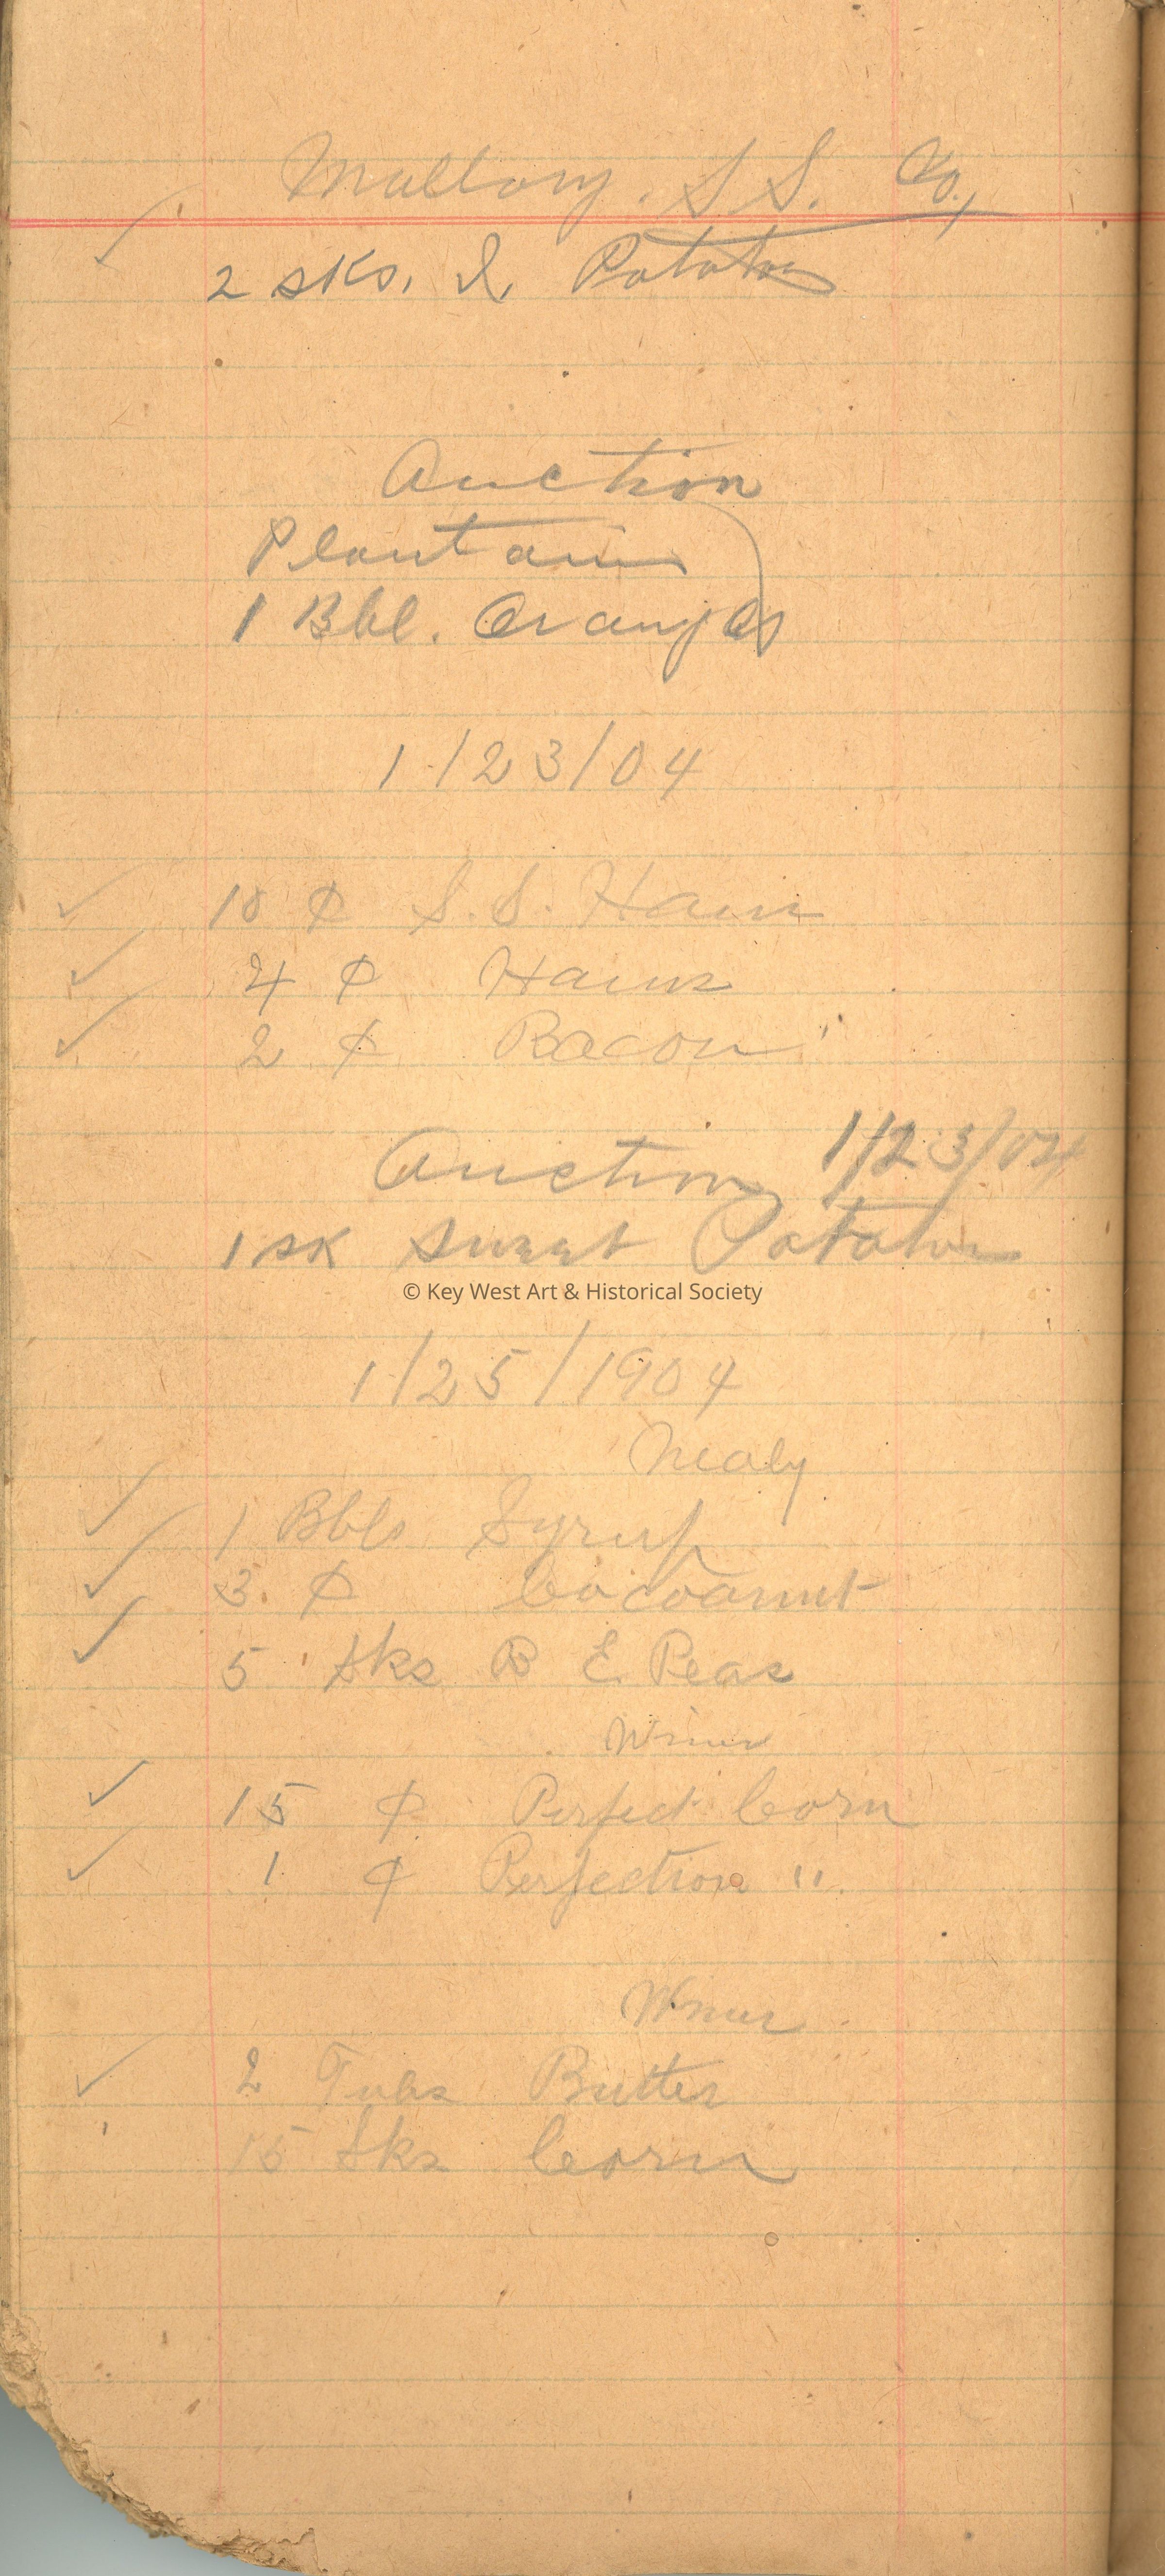 Mallory. S S. Co.,
✓ 2 sks. I. Potatoes
Auction
Plantains
1 Bbl. Oranges
1/23/04
✓ 10 ₵ S. S. Ham
✓ 4 ₵ Hams
✓ 2 ₵ Bacon
Auction 1/23/04
1 sk Sweet Potatoes
© Key West Art & Historical Society
1/25/1904
Nealy
✓ 1 Bbls Syrup
✓ 3 ₵ Cocoanut
✓ 5 Sks B E Peas
✓ 15 ₵ Perfect Corn
✓ 1 ₵ Perfection "
✓ 2 Tubs Butter
15 Sks Corn